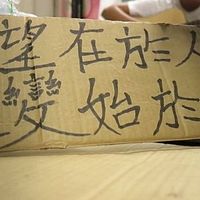 望在於人
變始於